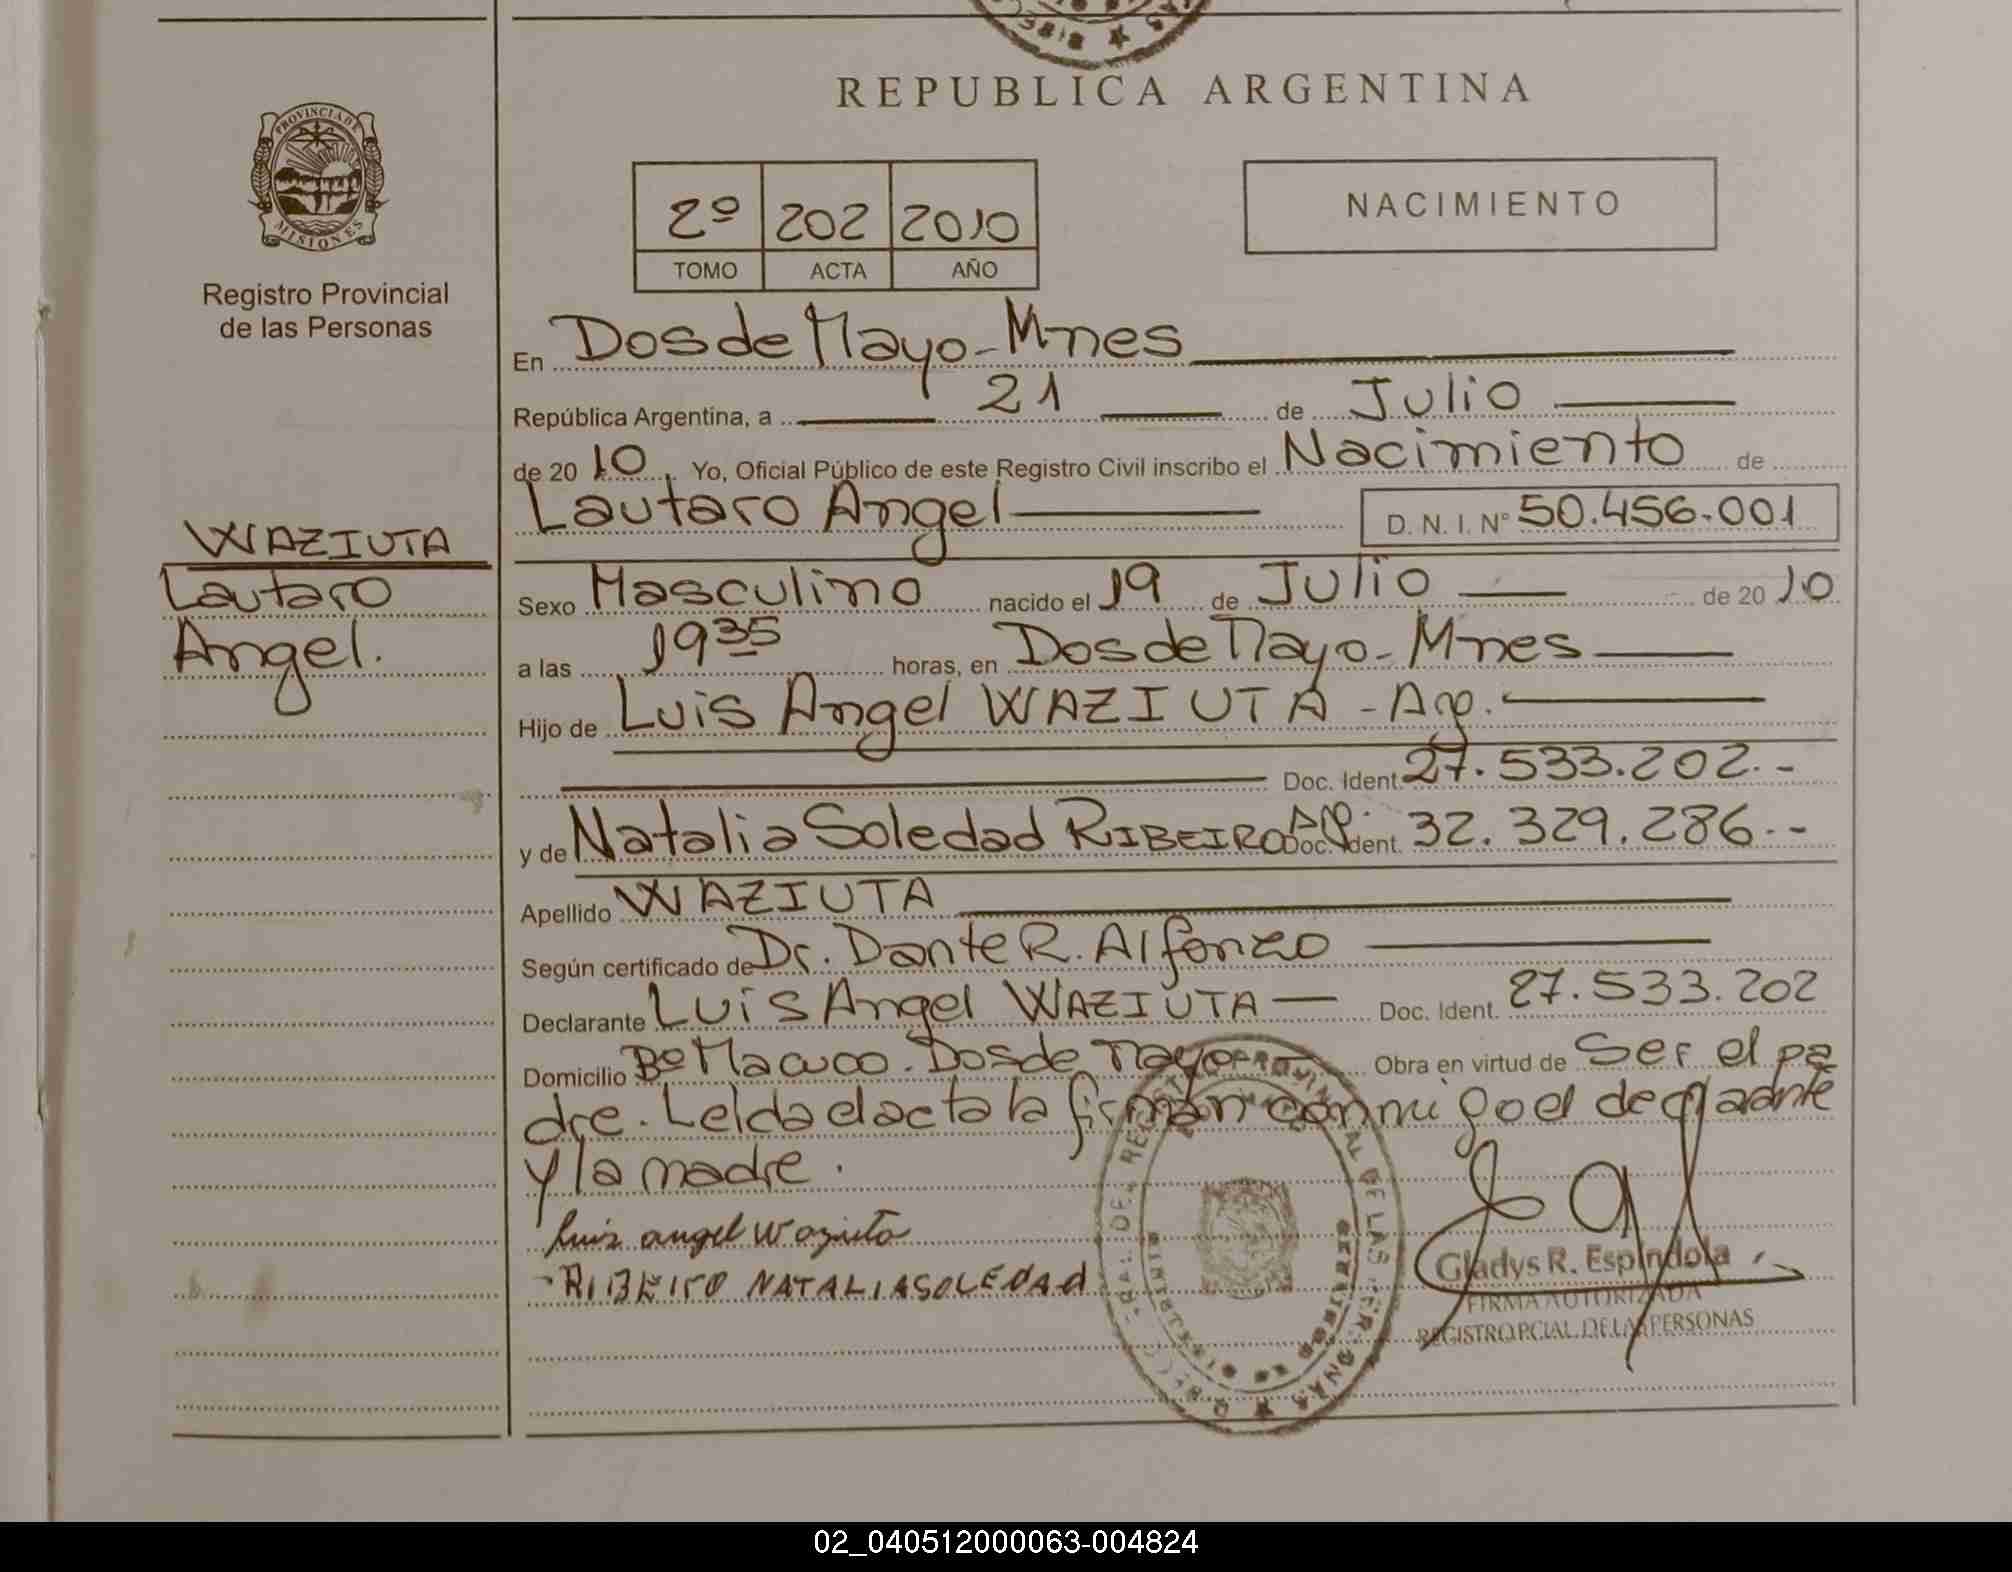 REPUBLICA ARGENTINA
PROVINCIA DE
MISIONES
Registro Provincial
de las Personas
2º 202 2010
TOMO ACTA AÑO
NACIMIENTO
En Dos de Mayo - Mnes
República Argentina, a 21 de Julio
de 20 10 Yo, Oficial Público de este Registro Civil inscribo el Nacimiento de
Lautaro Angel D. N. I. Nº 50.456.001
WAZIUTA
Lautaro
Angel.
Sexo Masculino nacido el 19 de Julio de 20 10
a las 19 35 horas, en Dos de Mayo - Mnes
Hijo de Luis Angel WAZIUTA - Arg.
Doc. Ident. 27.533.202.-
y de Natalia Soledad RIBEIRO Arg. Doc. Ident. 32.329.286.-
Apellido WAZIUTA
Según certificado de Dr. Dante R. Alfonzo
Declarante Luis Angel WAZIUTA Doc. Ident. 27.533.202
Domicilio Bº Macuco. Dos de Mayo Obra en virtud de Ser el pa
dre. Leida el acta la firman conmigo el declarante
y la madre.
Luis angel Waziuta
RIBEIRO NATALIA SOLEDAD
Gladys R. Espindola
FIRMA AUTORIZADA
REGISTRO PCIAL. DE LAS PERSONAS
02_040512000063-004824